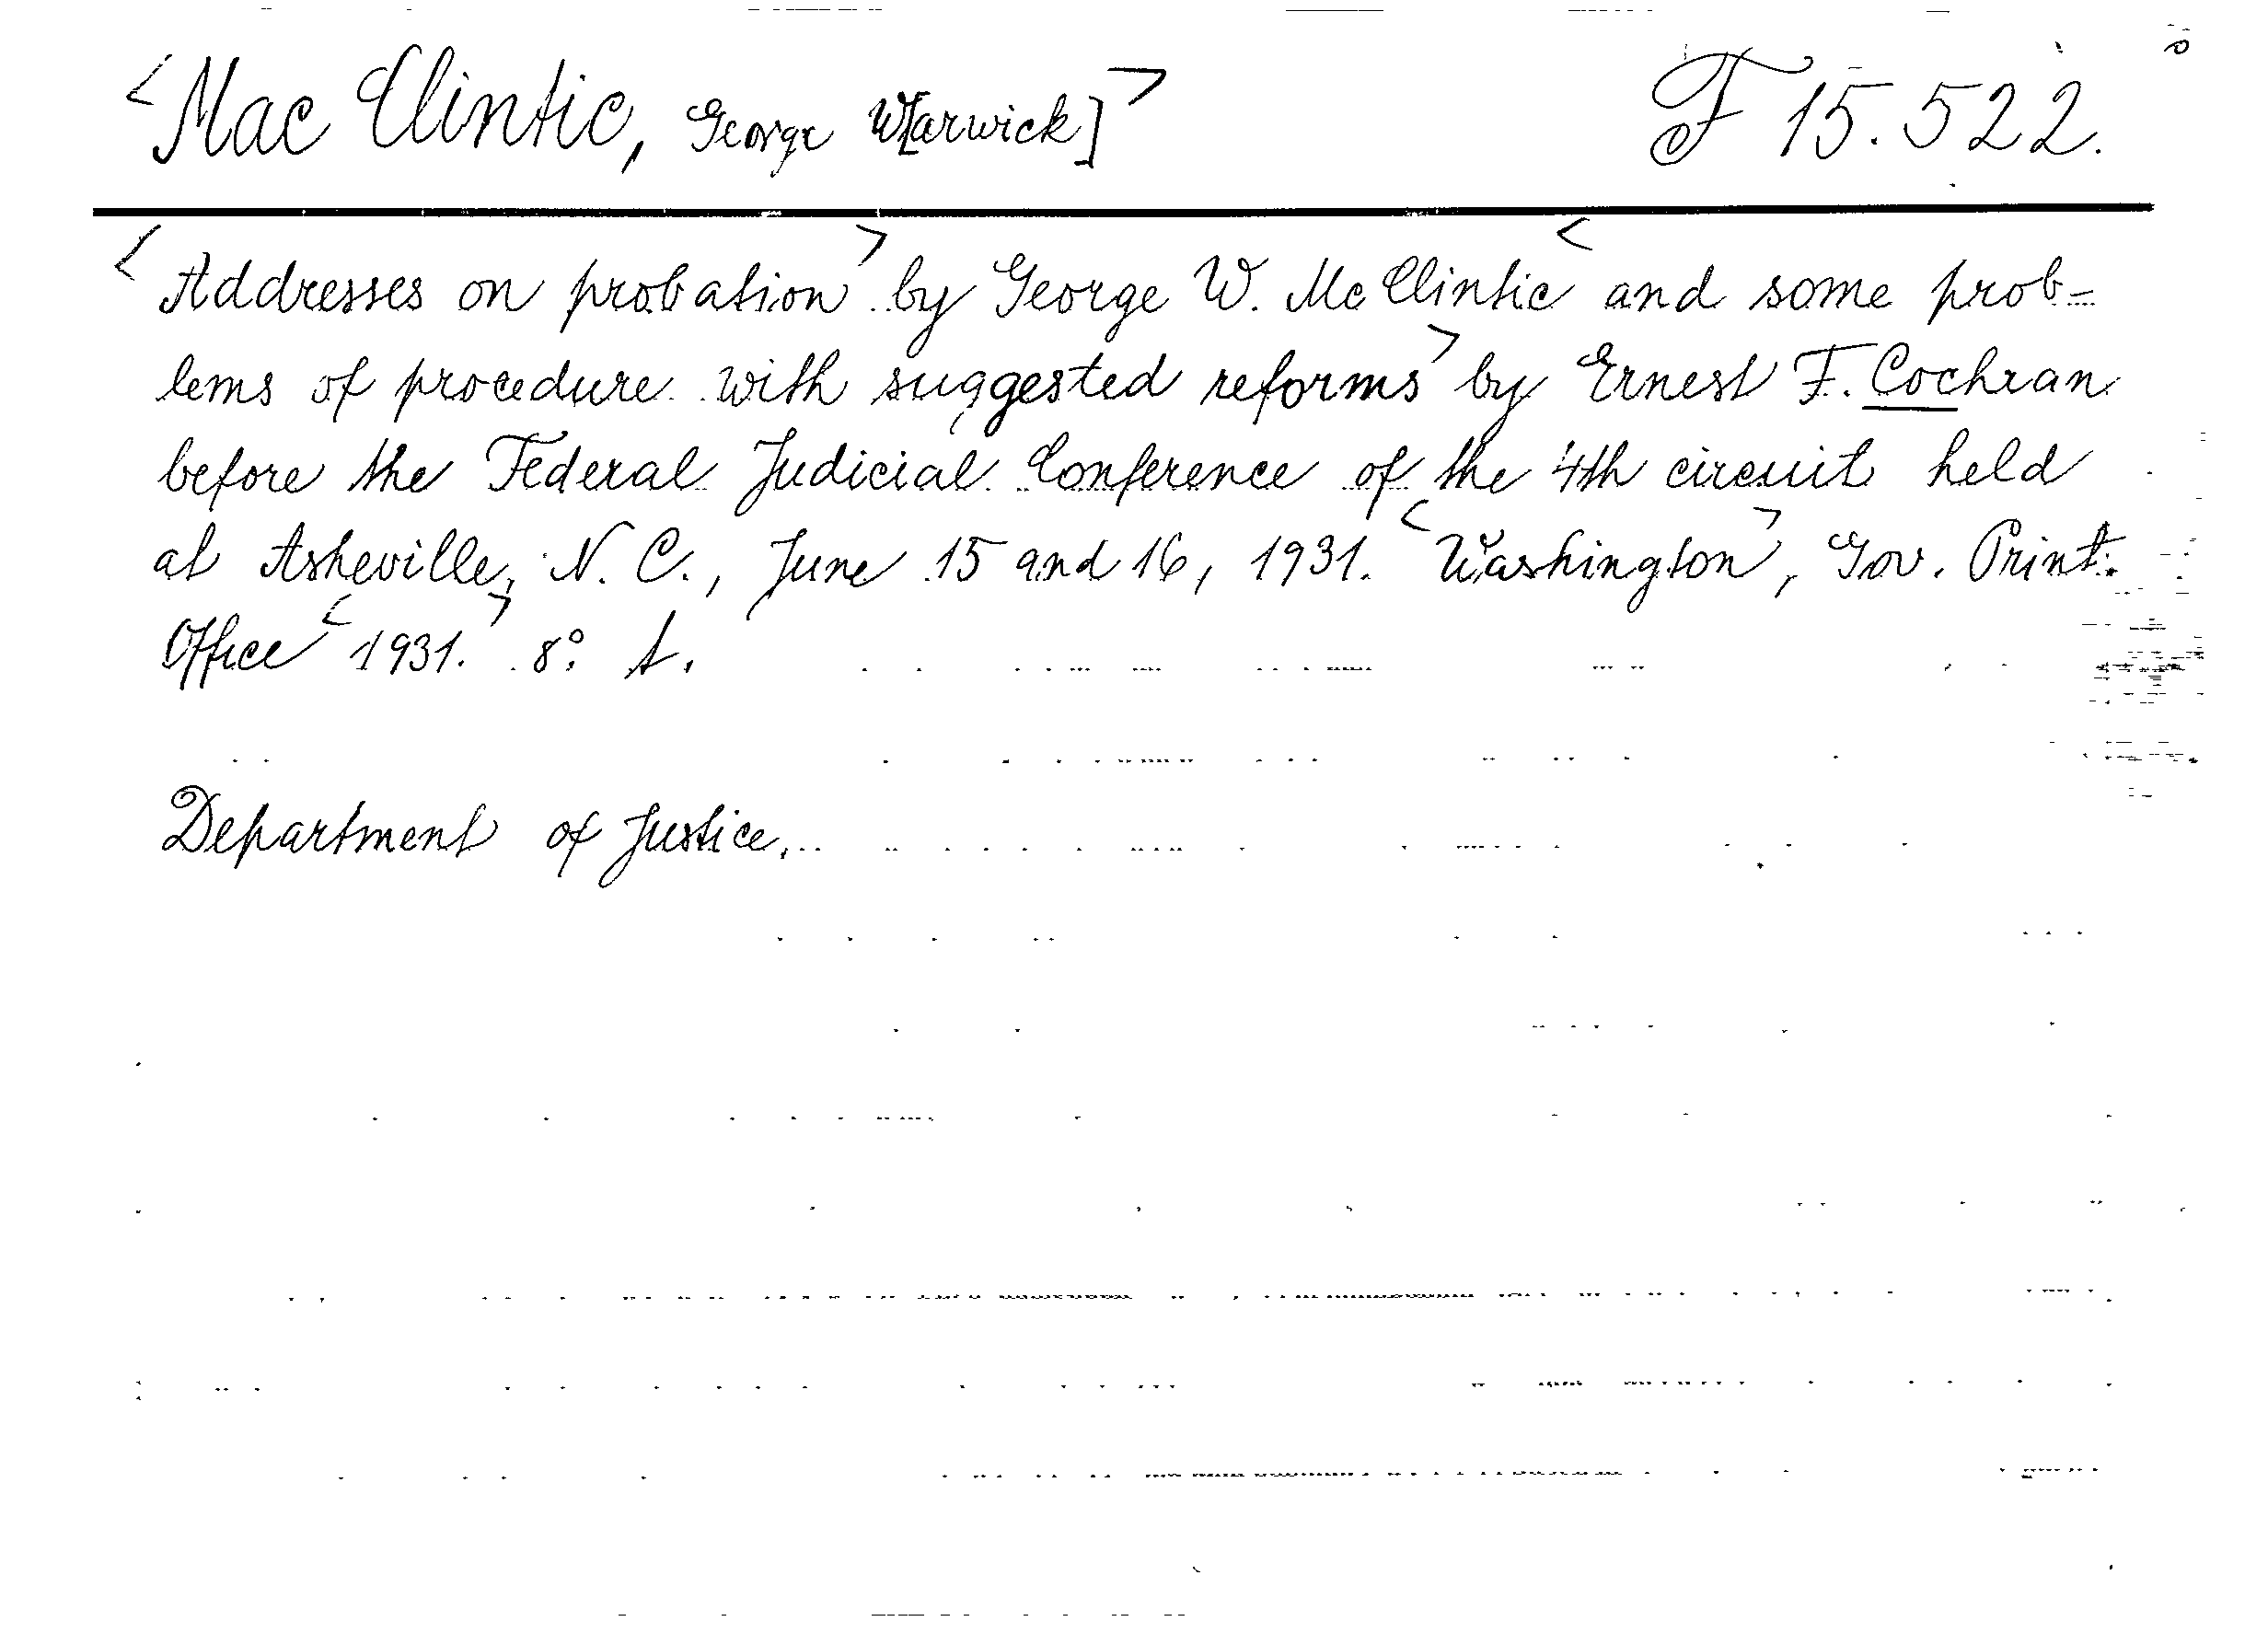 <Mac Clintic, George W[arwick]> F 15.522.
<Addresses on probation> by George W. Mc Clintic <and some prob-
lems of procedure with suggested reforms> by Ernest F. Cochran
before the Federal Judicial Conference of the 4th circuit held
at Asheville, N. C., June 15 and 16, 1931. <Washington>, Gov. Print.
Office <1931.> 8°. A.
Department of Justice.